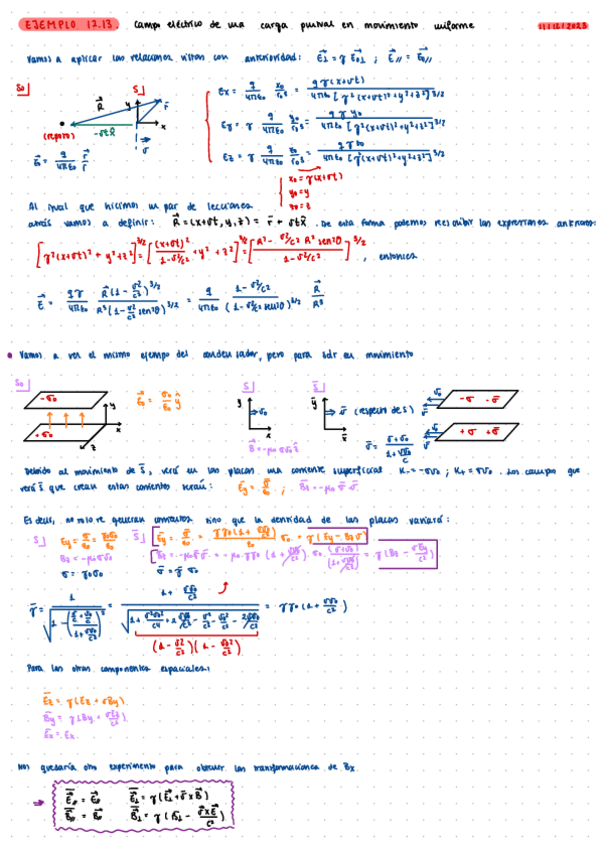 EJEMPLO 12.13. Campo eléctrico de una carga puntual en movimiento uniforme
Vamos a aplicar las relaciones vistas con anterioridad: E⃗⊥ = γ E⃗0⊥ ; E⃗// = E⃗0//
S0 S
R⃗ y r⃗
x
(reposo) -vtx̂
v⃗
E⃗0 = q/4πε0 r⃗/r³
Ex = q/4πε0 x0/r0³ = qγ(x+vt)/4πε0[γ²(x+vt)²+y²+z²]^3/2
Ey = γ q/4πε0 y0/r0³ = qγy0/4πε0[γ²(x+vt)²+y²+z²]^3/2
Ez = γ q/4πε0 z0/r0³ = qγz0/4πε0[γ²(x+vt)²+y²+z²]^3/2
x0 = γ(x+vt)
y0 = y
z0 = z
Al igual que hicimos un par de lecciones
atrás vamos a definir: R⃗ = (x+vt, y, z) = r⃗ + vtx̂. De esta forma podemos reescribir las expresiones anteriores:
[γ²(x+vt)² + y² + z²]^3/2 = [(x+vt)²/1-v²/c² + y² + z²]^3/2 = [R² - v²/c² R² sen²θ/1-v²/c²]^3/2, entonces
E⃗ = qγ/4πε0 R⃗(1-v²/c²)^3/2/R³(1-v²/c² sen²θ)^3/2 = q/4πε0 1-v²/c²/(1-v²/c² sen²θ)^3/2 R⃗/R³
Vamos a ver el mismo ejemplo del condensador, pero para sdr en movimiento
S0 S S̄
-σ0 y x z +σ0
E⃗0 = σ0/ε0 ŷ
y v0 x
B⃗ = -μ0σv0ẑ
ȳ v⃗ (respecto de S) x̄
v̄ = v+v0/1+vv0/c²
v0 v̄ -σ -σ̄
v0 v̄ +σ +σ̄
Debido al movimiento de S̄, verá en las placas una corriente superficial K- = -σv0 ; K+ = σv0. Los campos que
verá S̄ que crean estas corrientes serán: Ēy = σ̄/ε0 ; B̄z = -μ0 σ̄ v̄
Es decir, no solo se generan corrientes sino que la densidad de las placas variará:
S Ey = σ/ε0 = γ0σ0/ε0
Bz = -μ0σv0
σ = γ0σ0
S̄ Ēy = σ̄/ε0 = γγ0(1+vv0/c²)/ε0 σ0 = γ(Ey - Bzv)
B̄z = -μ0σ̄v̄ = -μ0γγ0(1+vv0/c²) σ0 (v+v0)/(1+vv0/c²) = γ(Bz - vEy/c²)
σ̄ = γ̄ σ0
Para las otras componentes espaciales:
Ēz = γ(Ez + vBy)
B̄y = γ(By + vEz/c²)
Ēx = Ex
Nos quedaría otro experimento para obtener las transformaciones de Bx